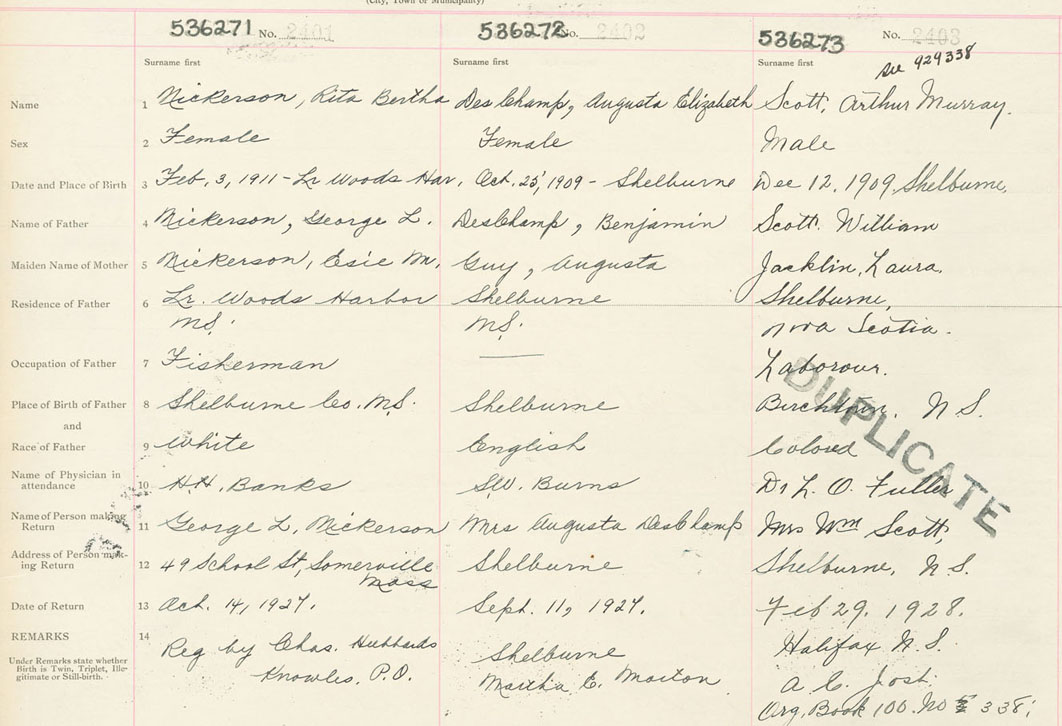 (City, Town or Municipality)
536271 No. 2401 536272 No. 2402 536273 No. 2403
see 929338
Surname first Surname first Surname first
Name 1 Nickerson, Rita Bertha DesChamp, Augusta Elizabeth Scott, Arthur Murray.
Sex 2 Female Female Male
Date and Place of Birth 3 Feb. 3, 1911 - Lr Woods Har, Oct. 25, 1909 - Shelburne Dec 12, 1909, Shelburne,
Name of Father 4 Nickerson, George L. DesChamp, Benjamin Scott. William
Maiden Name of Mother 5 Nickerson, Essie M. Guy, Augusta Jacklin, Laura.
Residence of Father 6 Lr. Woods Harbor Shelburne Shelburne,
N.S. N.S. Nova Scotia.
Occupation of Father 7 Fisherman —— Laborour.
DUPLICATE
Place of Birth of Father 8 Shelburne Co. N.S. Shelburne Birchtown. N S.
and
Race of Father 9 White English Colored
Name of Physician in
attendance 10 H.H. Banks S.W. Burns Dr L. O. Fuller
Name of Person making
Return 11 George L, Nickerson Mrs Augusta DesChamp Mrs Wm Scott,
Address of Person mak-
ing Return 12 49 School St, Somerville Shelburne Shelburne, N.S.
Mass
Date of Return 13 Oct. 14, 1927. Sept. 11, 1927. Feb 29. 1928.
REMARKS 14 Reg by Chas. Hubbards Shelburne Halifax N.S.
Under Remarks state whether
Birth is Twin, Triplet, Ille-
gitimate or Still-birth.
Knowles, P.O. Martha C. Morton A C. Jost
Org. Book 100. No 338;